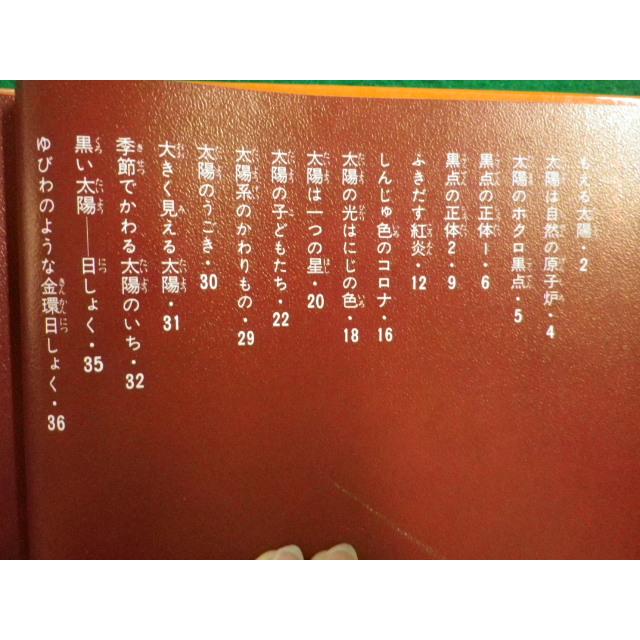 もえる太陽・2
太陽は自然の原子炉・4
太陽のホクロ黒点・5
黒点の正体1・6
黒点の正体2・9
ふきだす紅炎・12
しんじゅ色のコロナ・16
太陽の光はにじの色・18
太陽は一つの星・20
太陽の子どもたち・22
太陽系のかわりもの・29
太陽のうごき・30
大きく見える太陽・31
季節でかわる太陽のいち・32
黒い太陽——日しょく・35
ゆびわのような金環日しょく・36